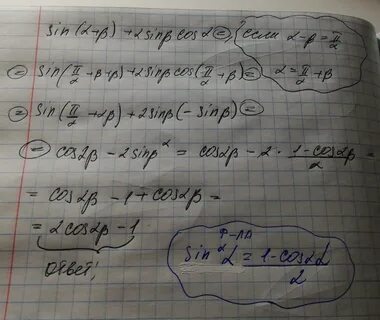 sin(α+β)+2sinβ cosα =, если α-β=π/2
= sin(π/2+β+β)+2sinβcos(π/2+β)= α=π/2+β
= sin(π/2+2β)+2sinβ(-sinβ)=
= cos2β-2sinβ² = cos2β-2·(1-cos2β)/2 =
= cos2β-1+cos2β =
= 2cos2β-1
ответ;
Ф-ЛА
sin²α = (1-cos2α)/2